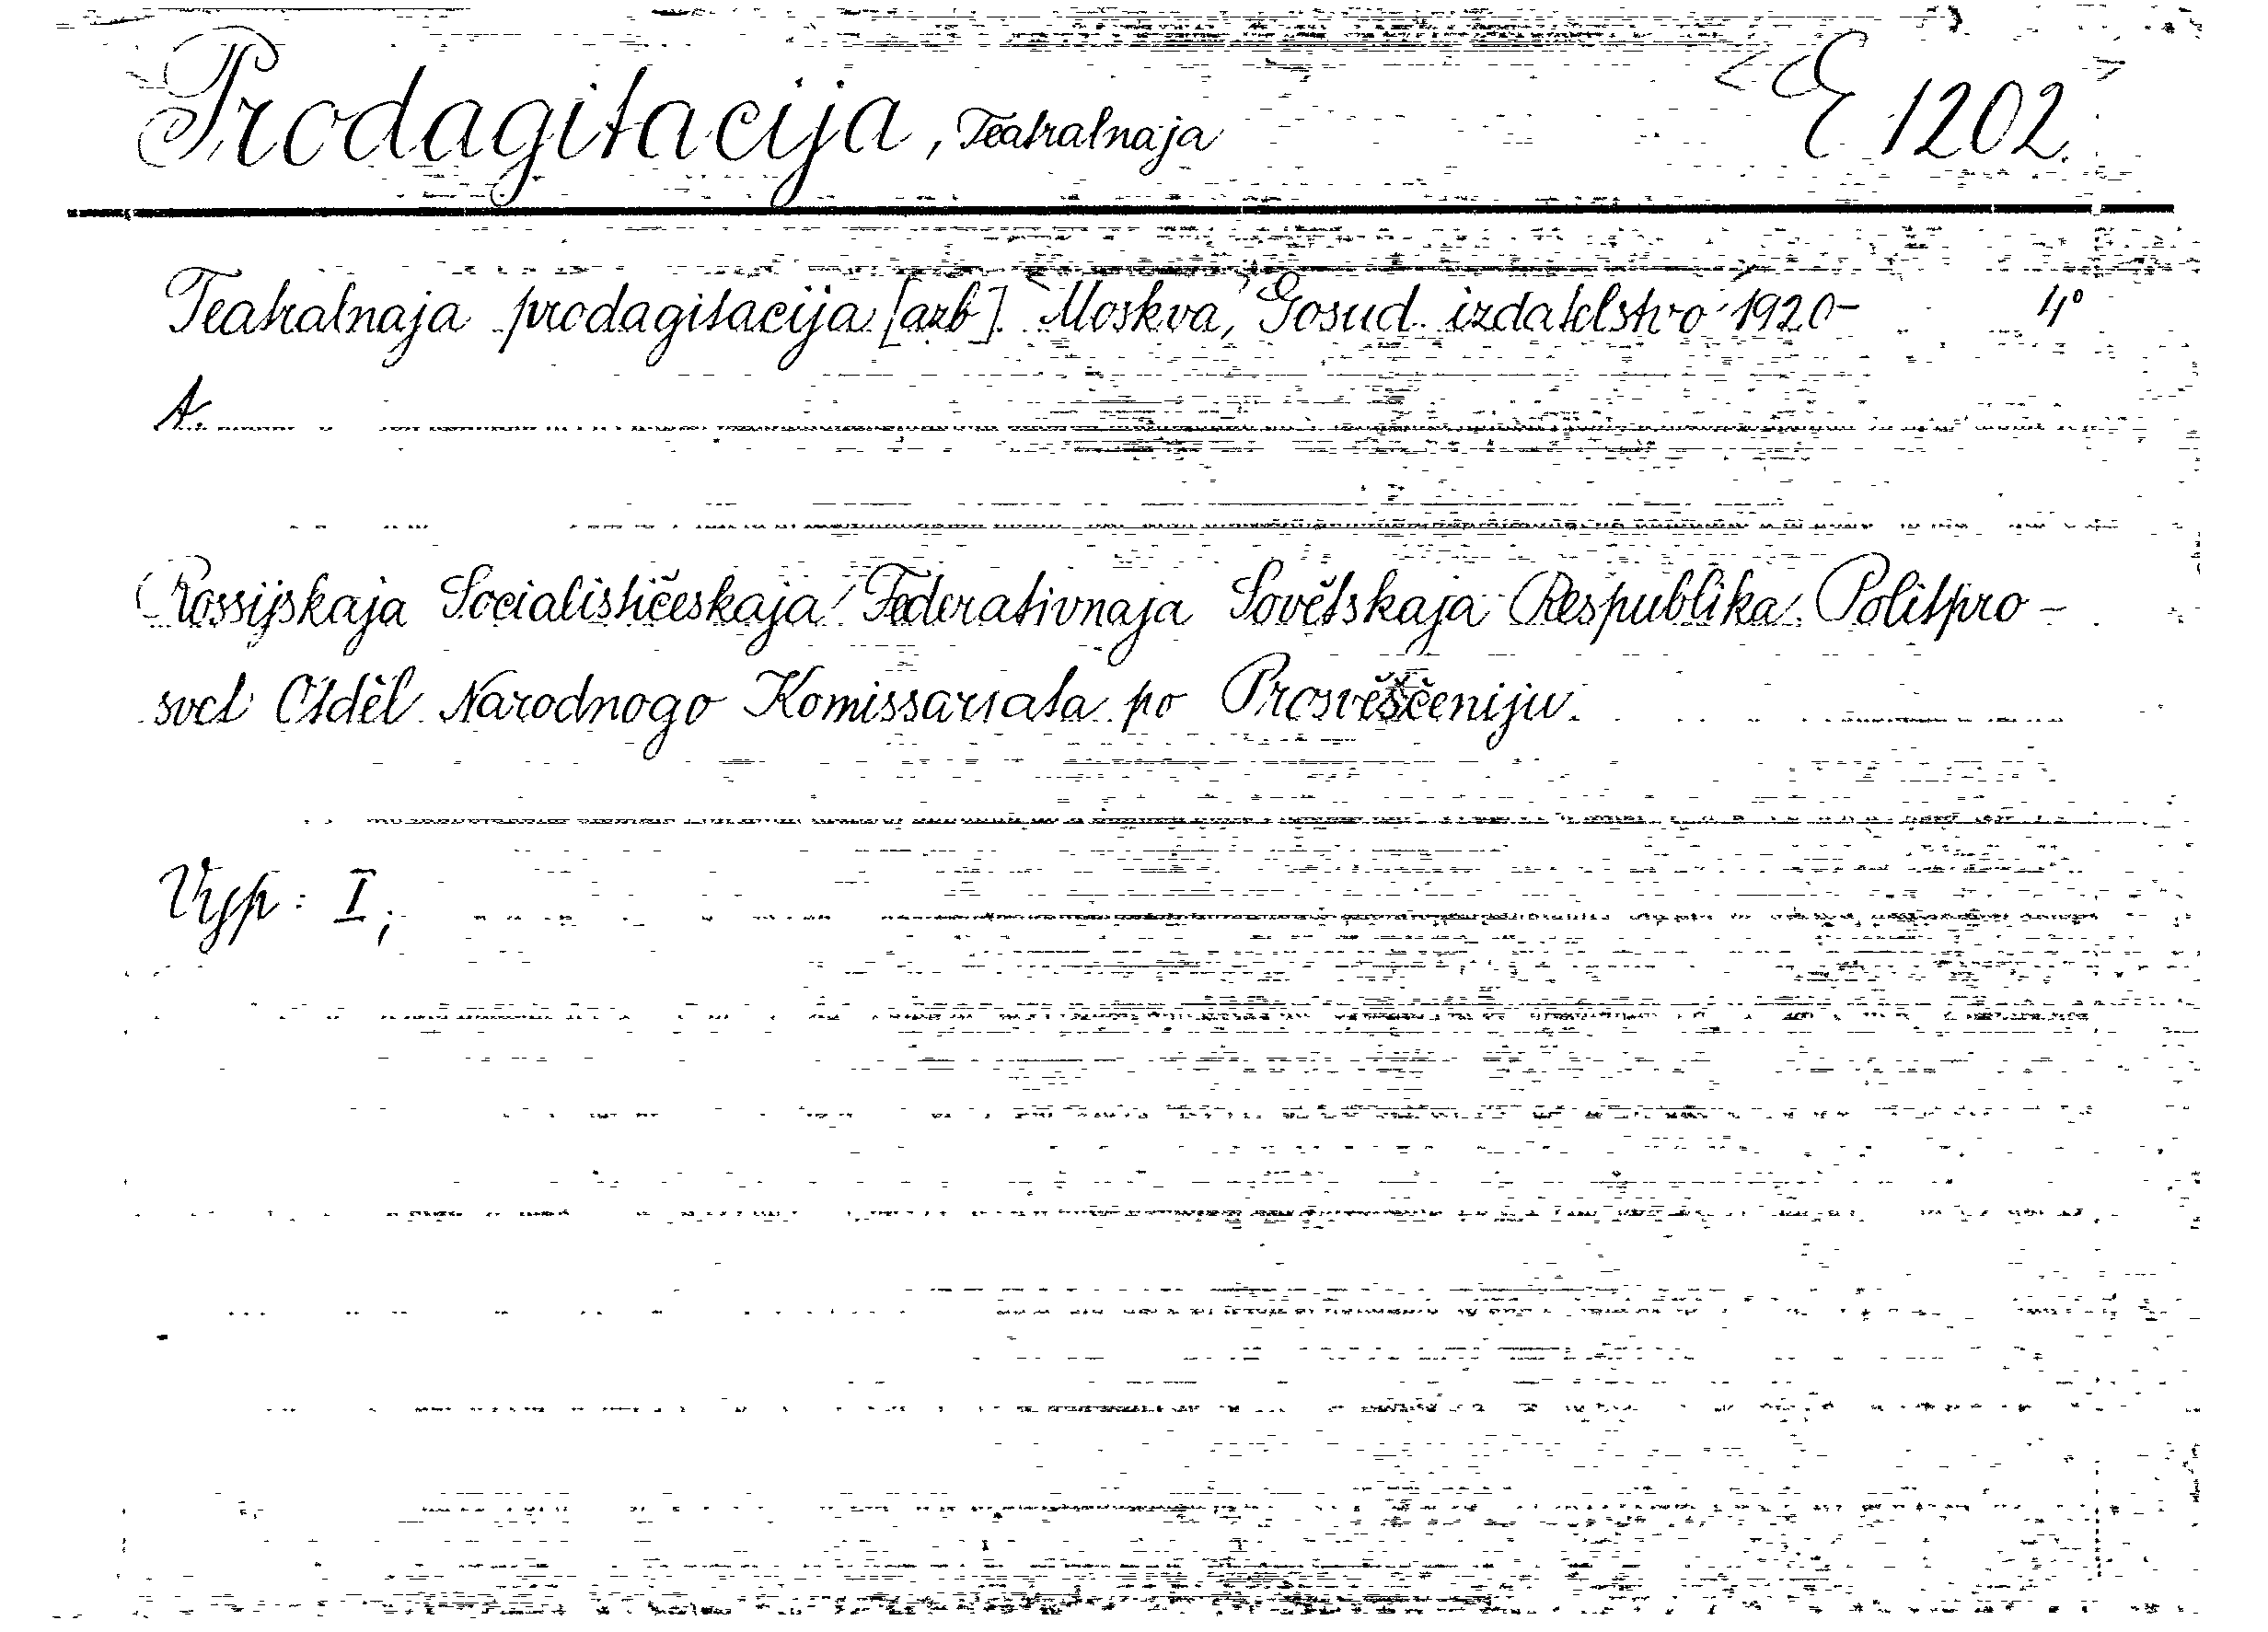 Prodagitacija, Teatralnaja E 1202.
Teatralnaja prodagitacija [azb]. Moskva, Gosud. izdatelstvo 1920- 4°
A.
Rossijskaja Socialističeskaja Federativnaja Sovětskaja Respublika. Politpro-
svet Otděl Narodnogo Komissariata po Prosvěščeniju.
Vyp: I;